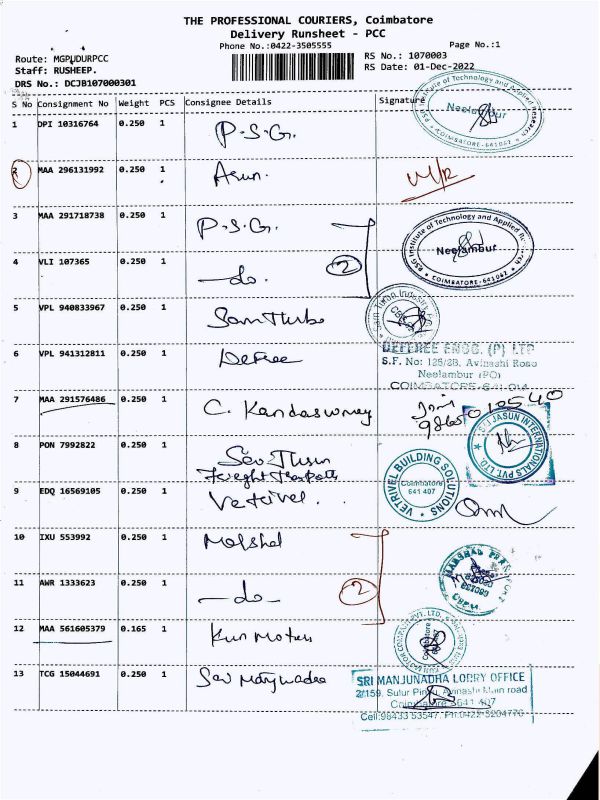 THE PROFESSIONAL COURIERS, Coimbatore
Delivery Runsheet - PCC
Phone No.:0422-3505555
Page No.:1
Route: MGPUDURPCC
RS No.: 1070003
Staff: RUSHEEP.
RS Date: 01-Dec-2022
DRS No.: DCJB107000301
S No Consignment No Weight PCS Consignee Details Signature
1 DPI 10316764 0.250 1 P.S.G.
PSG Institute of Technology and Applied Research
Neelambur
COIMBATORE-641062
2 MAA 296131992 0.250 1 Arun.
3 MAA 291718738 0.250 1 P.S.G.
PSG Institute of Technology and Applied
Neelambur
COIMBATORE-641062
4 VLI 107365 0.250 1 -do- 2
5 VPL 940833967 0.250 1
6 VPL 941312811 0.250 1 Defree
DEFFREE ENGG. (P) LTD
S.F. No: 126/2B, Avinashi Road
Neelambur (PO)
7 MAA 291576486 0.250 1 C. Kandaswmey
SRI JASUN INTERNATIONALS PVT. LTD
8 PON 7992822 0.250 1
VETRIVEL BUILDING SOLUTIONS
Coimbatore
641 407
9 EDQ 16569105 0.250 1 Vetrivel.
10 IXU 553992 0.250 1 Malshal
11 AWR 1333623 0.250 1 -do- 2
12 MAA 561605379 0.165 1
Coimbatore
13 TCG 15044691 0.250 1
SRI MANJUNADHA LORRY OFFICE
2/159, Sulur Main road
Cell:98433 53547